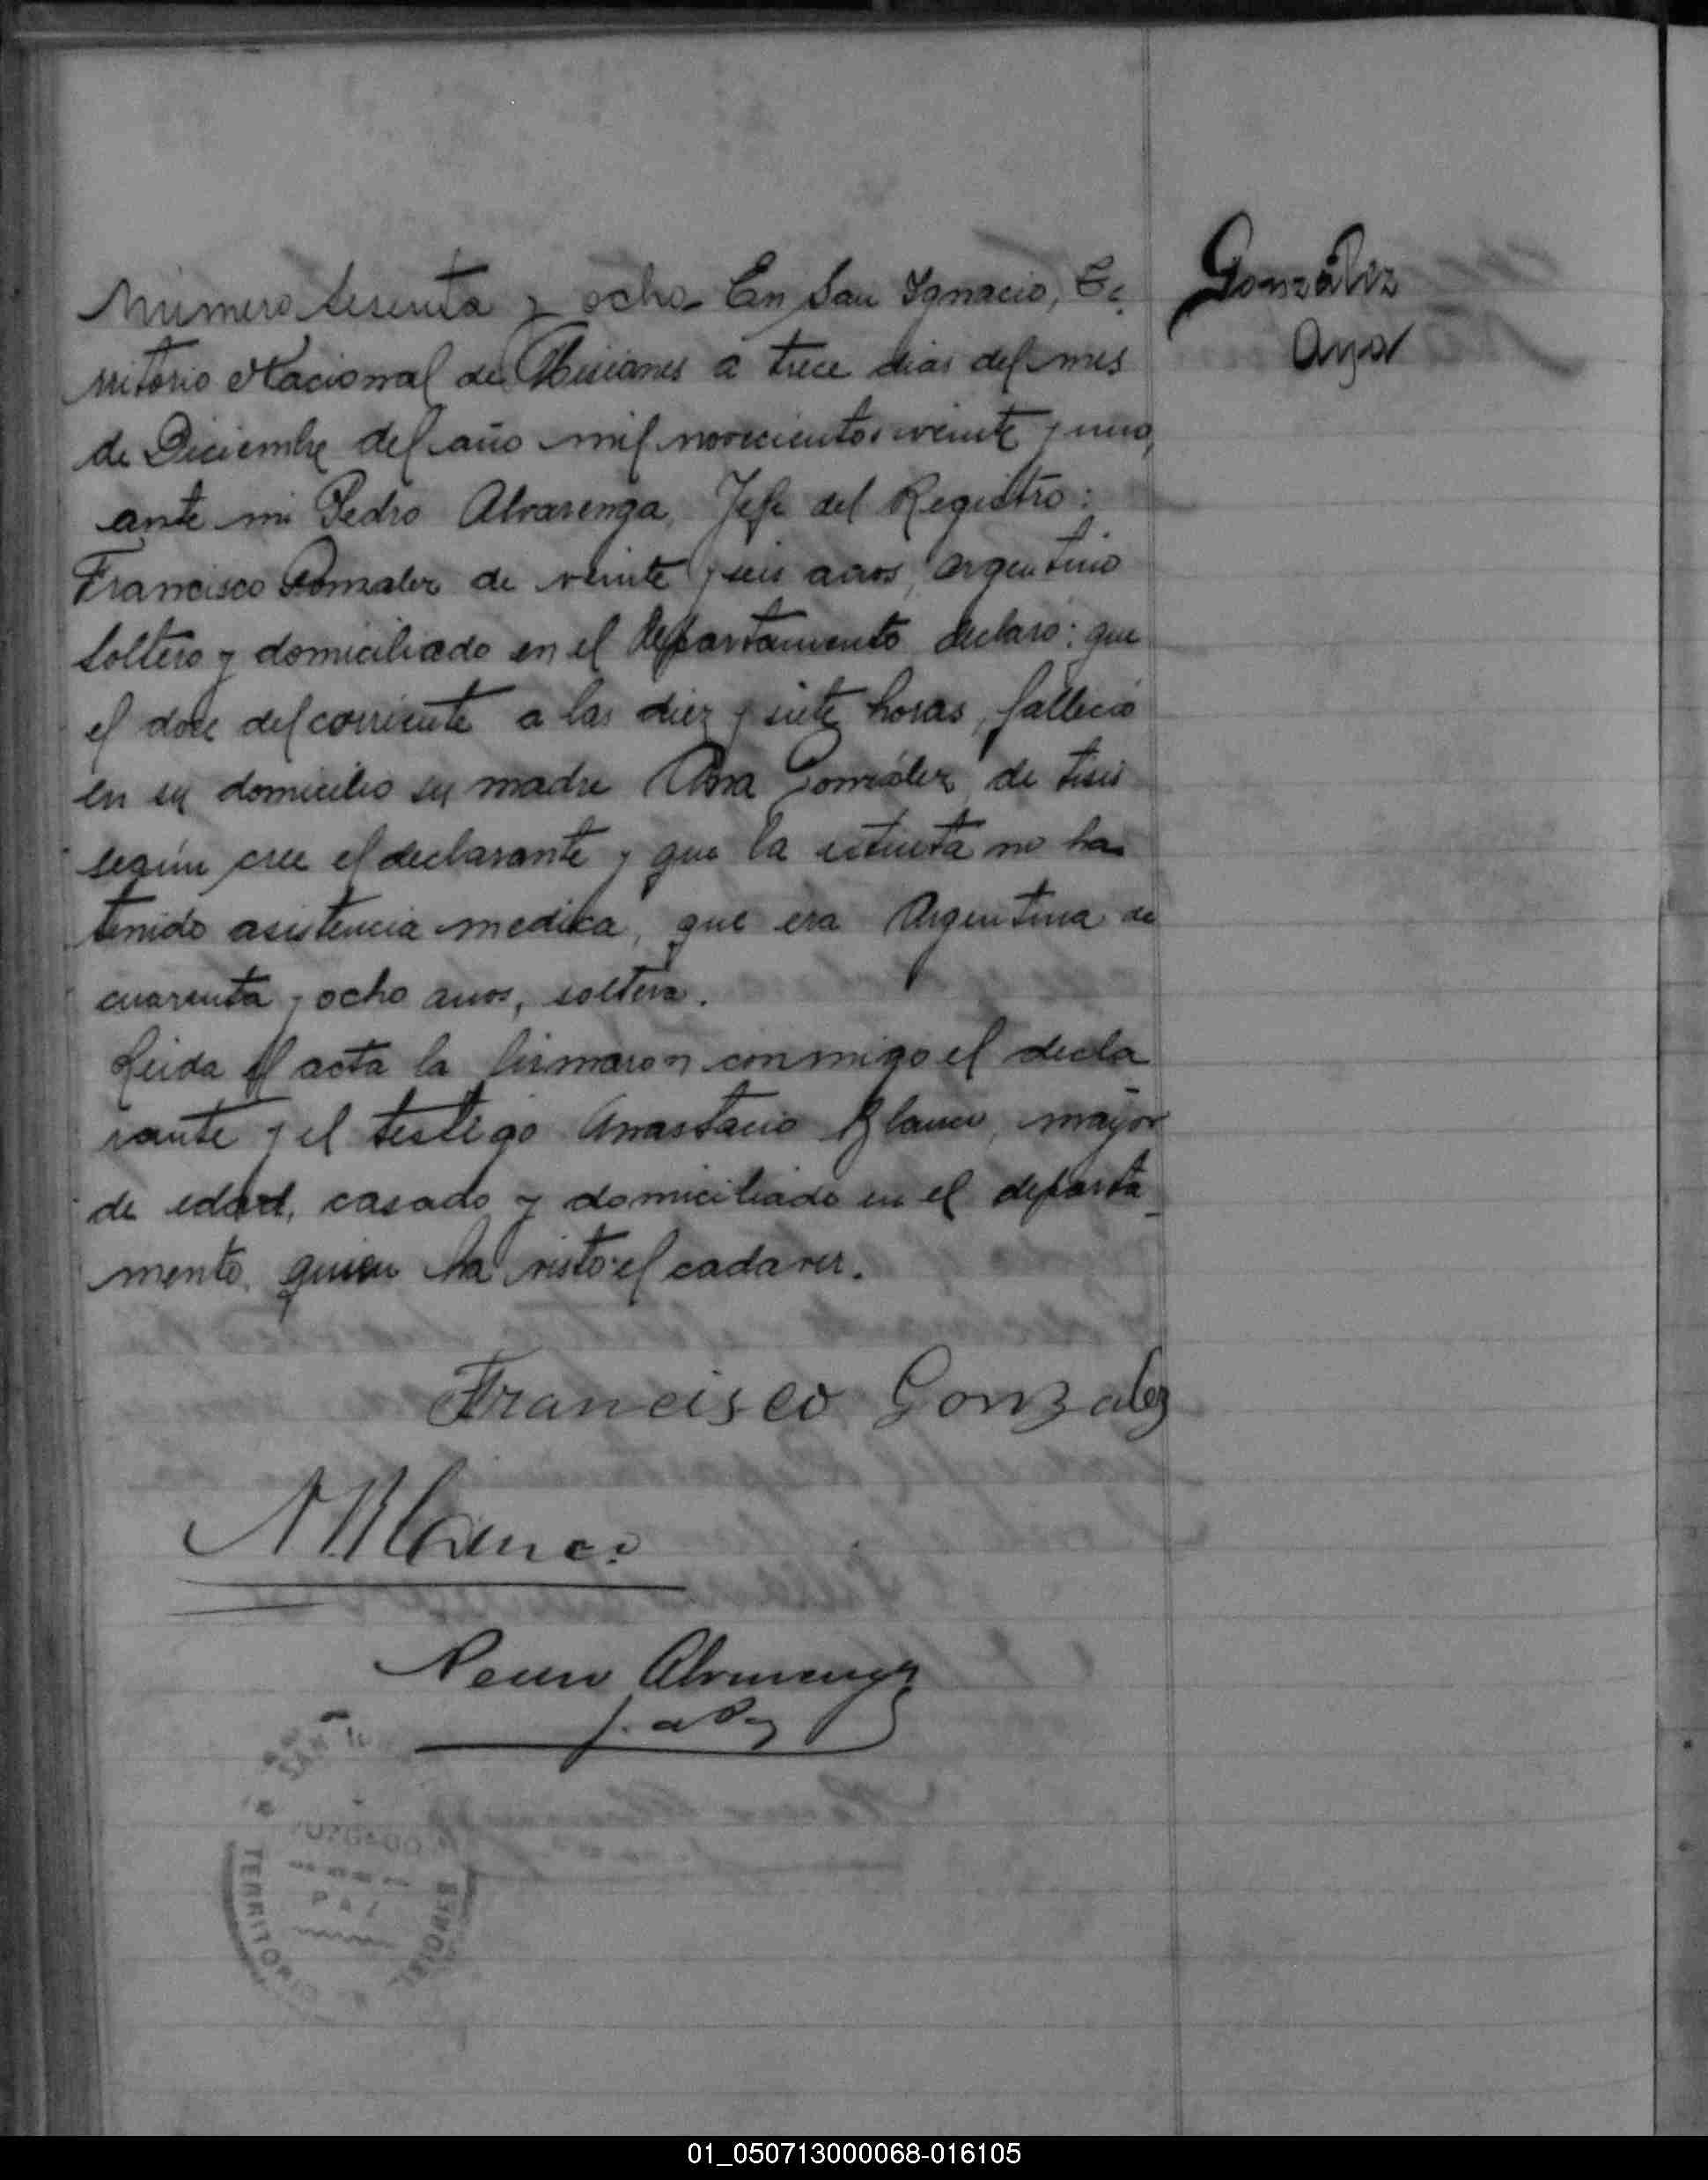 Número sesenta y ocho- En San Ignacio, Te
rritorio Nacional de Misiones a trece dias del mes
de Diciembre del año mil novecientos veinte y uno,
ante mi Pedro Alvarenga, Jefe del Registro:
Francisco Gonzalez de veinte y seis años, argentino
soltero y domiciliado en el departamento declaró: que
el doce del corriente a las diez y siete horas, falleció
en su domicilio su madre Ana González de tisis
según cree el declarante y que la extinta no ha
tenido asistencia medica, que era Argentina de
cuarenta y ocho años, soltera.
Leida el acta la firmaron conmigo el decla
rante y el testigo Anastacio Blanco, mayor
de edad, casado y domiciliado en el departa_
mento, quien ha visto el cadaver.
González
Ana
Francisco Gonzalez
A Blanco
Pedro Alvarenga
J. de Paz
SAN
JUZGADO
PAZ
TERRITORIO
MISIONES
01_050713000068-016105